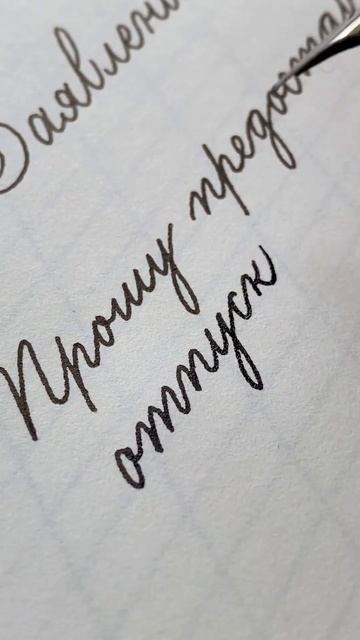 Заявлени
Прошу предостав
отпуск